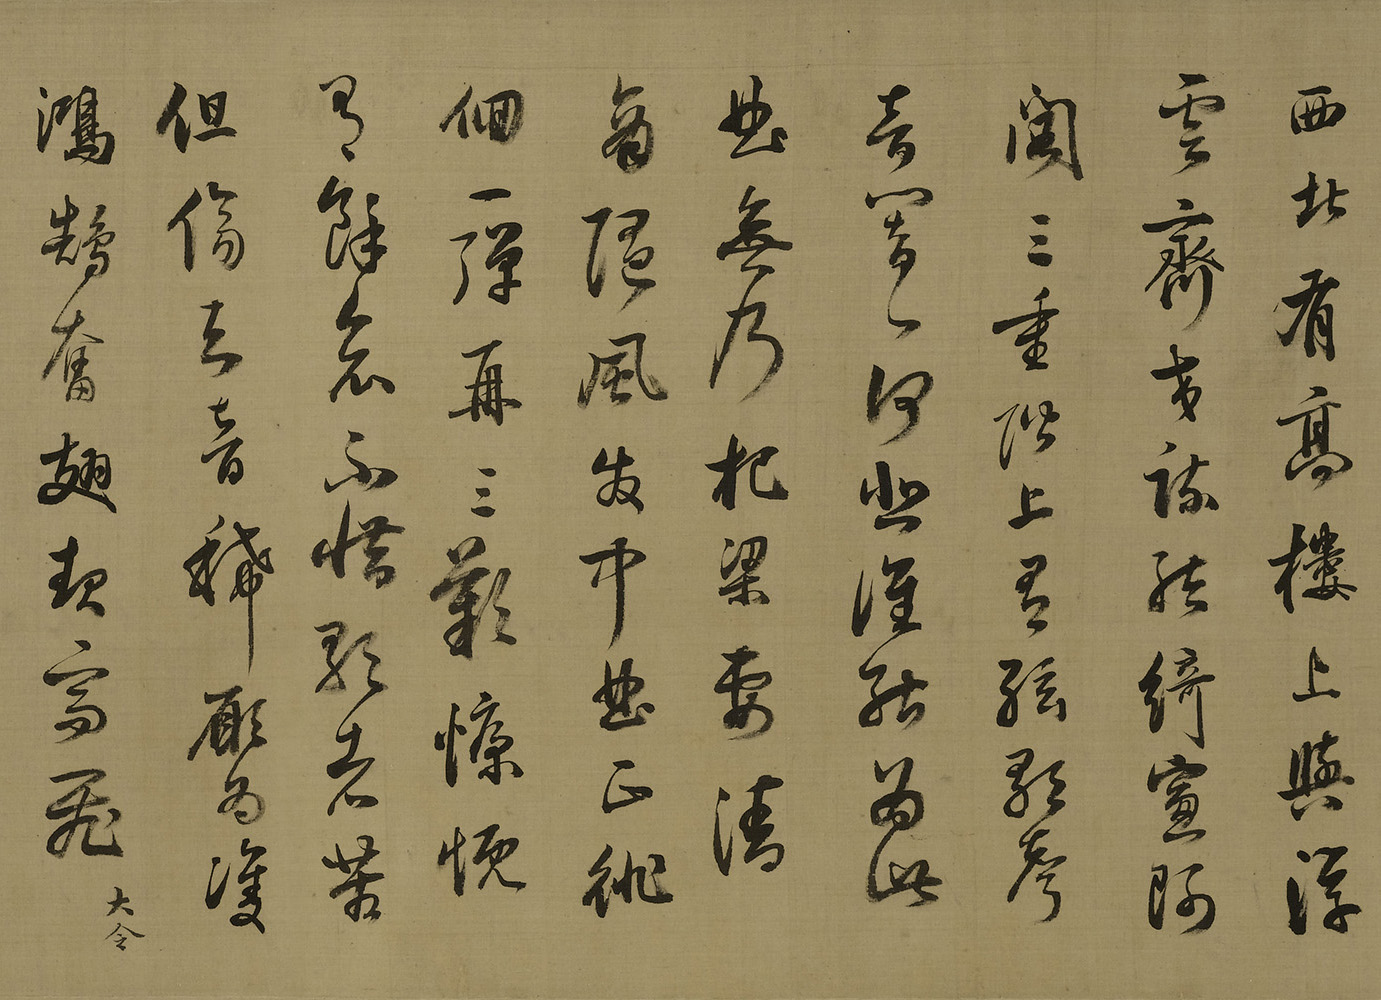 西北有高樓上與浮
雲齊交疏結綺窗阿
閣三重階上有絃歌聲
音響一何悲誰能為此
曲無乃杞梁妻清
商隨風發中曲正徘
徊一彈再三歎慷慨
有餘哀不惜歌者苦
但傷知音稀願為雙
鴻鵠奮翅起高飛
大令